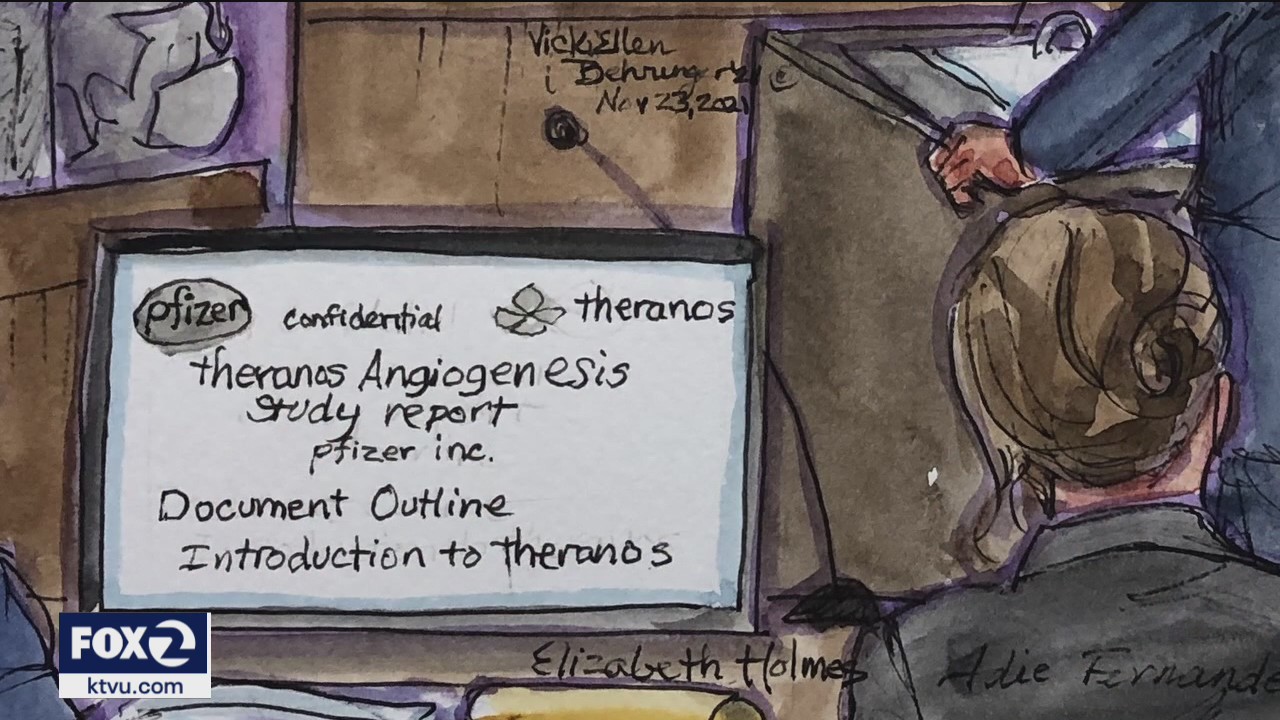 Vicki Ellen
Behringer
Nov 23, 2021
pfizer confidential theranos
theranos Angiogenesis
study report
pfizer inc.
Document Outline
Introduction to theranos
FOX 2
ktvu.com
Elizabeth Holmes